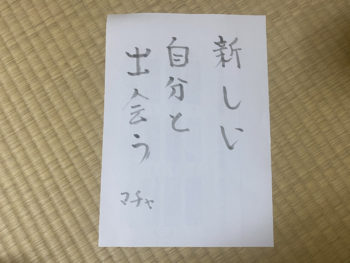 新しい
自分と
出会う
マチャ